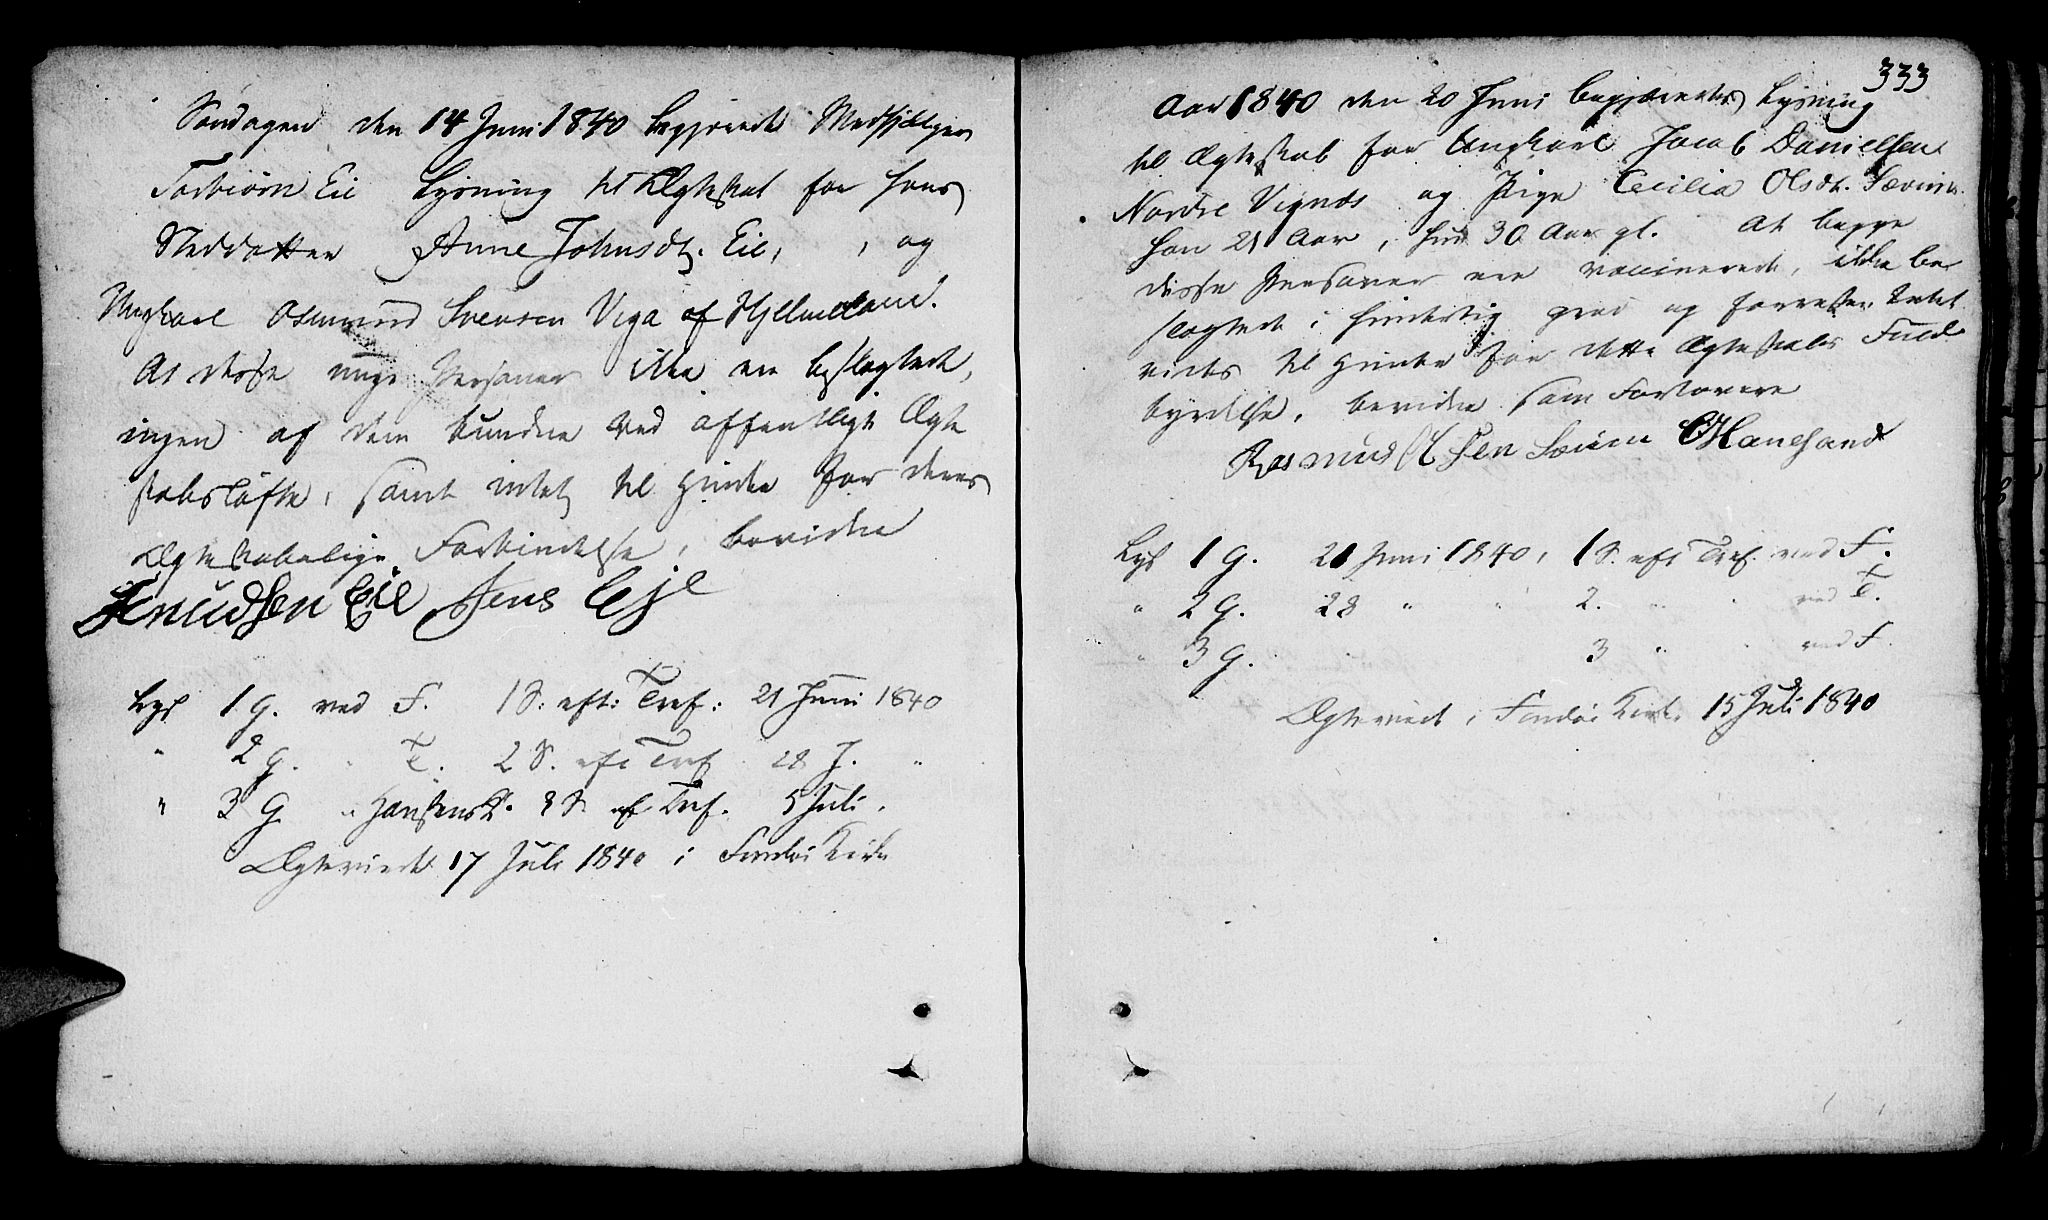 Søndagen den 14 Juni 1840 begjerede Medhjelper
Torbiørn Eie Lysning til Ægteskab for hans
Steddatter Anne Johnsdt. Eie, og
Ungkarl Osmund Svensen Viga af Hjelmeland.
At disse unge Personer ikke ere beslegtede,
ingen af dem bundne ved offentligt Ægte
skabsløfte, samt intet til Hinder for deres
Ægteskabelige Forbindelse, bevidne
Knudsen Eie Jens Eje
Lys 1 G. ved F. 1 S: eft: Tref: 21 Juni 1840
" 2 G. " T. 2 S. eft Tref 28 J. "
" 3 G " 3 S. ef Tref. 5 Juli.
Ægteviede 17 Juli 1840 i Findøe Kirke
333
Aar 1840 den 20 Juni begjæredes Lysning
til Ægteskab for Ungkarl Jacob Danielsen
Nordre Vignes og Pige Cecilia Olsdt. Sævim.
han 21 Aar, hun 30 Aar gl. At begge
disse Personer ere vaccinerede, ikke be
slegtede i forbudig grad og forresten Intet
vides til Hinder for dette Ægteskabs Fuld
byrdelse, bevidne som Forlovere
Rasmus Olsen Sævim Hanesand
Lys 1 G. 21 Juni 1840, 1 S. eft Tref. ved F.
" 2 G. 28 " " 2. " " ved T.
" 3 G. " " 3 " " ved F.
Ægteviede i Findøe Kirke 15 Juli 1840